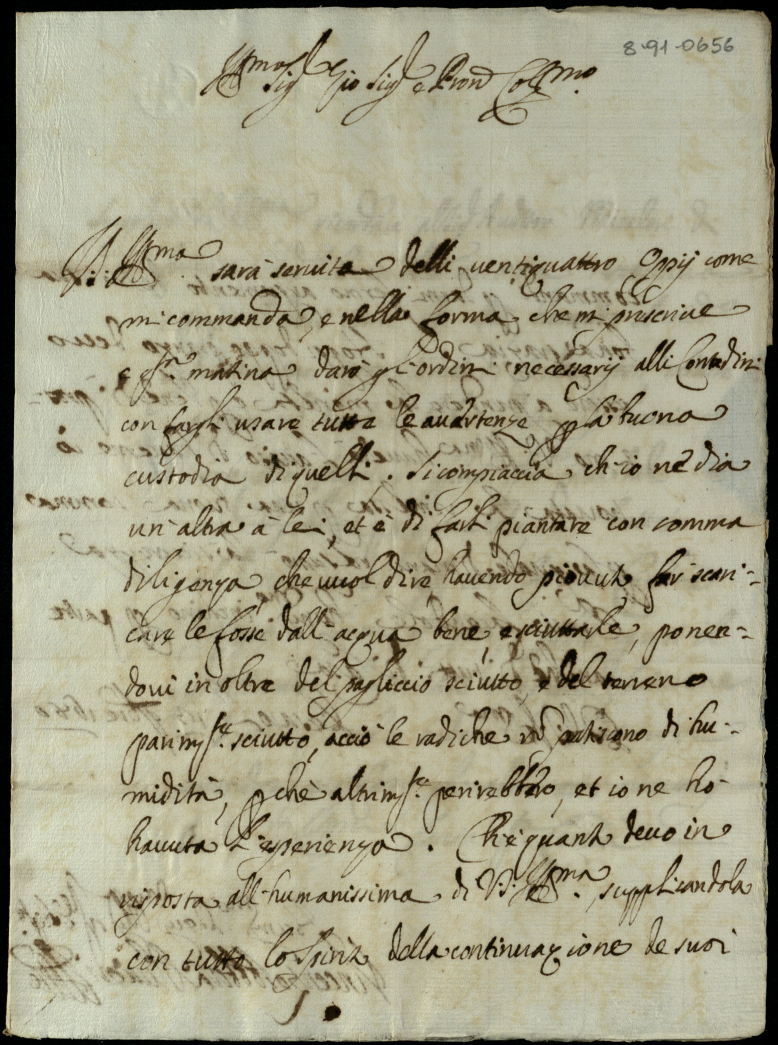 8-91-0656
Ill.mo Sig.r Mio Sig.r e Pron Col.mo
V. S. Ill.ma sarà servita delli ventiquattro Oppij come
mi commanda, e nella forma che mi priscrive
e q.sta matina darò gl'ordini necessarij alli Contadini
con fargli usare tutte le avertenze p la buona
custodia di quelli. Si compiaccia ch'io ne dia
un'altra à lei, et è di farli piantare con somma
diligenza che vuol dire, havendo piovuto far scari-
care le fosse dall'acqua bene, e sciuttarle, ponen-
dovi in oltre del pagliccio sciutto, e del terreno
parim.te sciutto, acciò le radiche nō patiscono di hu-
midità, p chè altrim.te perirebbero, et io ne hò
havuta l'esperienza. Ch'è quanto devo in
risposta all'humanissima di V. S. Ill.ma, supplicandola
con tutto lo spirito della continuazione de suoi